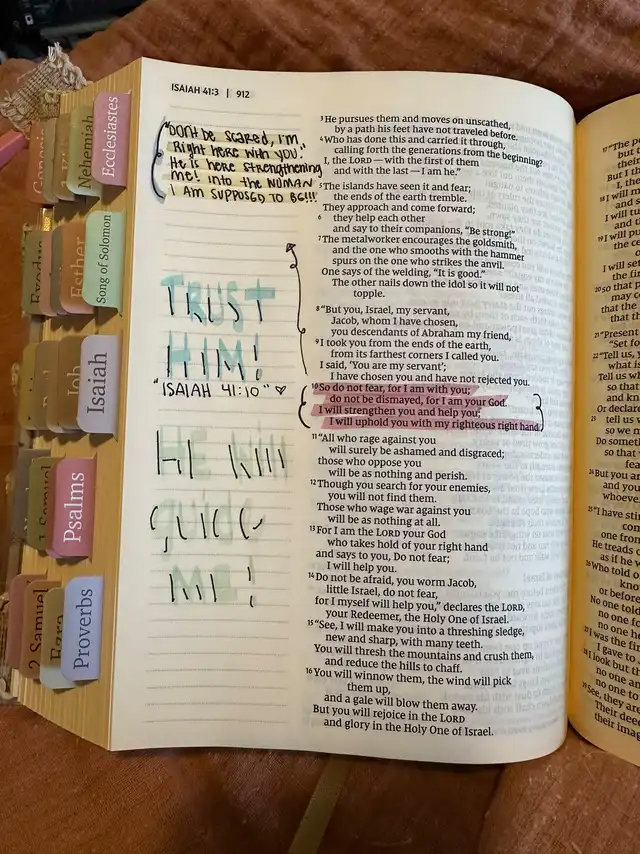 ISAIAH 41:3 | 912
"DON'T BE SCARED, I'M
RIGHT HERE WITH YOU."
HE IS HERE STRENGTHENING
ME! INTO THE WOMAN
I AM SUPPOSED TO BE!!!
TRUST
HIM!
"ISAIAH 41:10" ♡
HE WILL
guide
ME!
3 He pursues them and moves on unscathed,
by a path his feet have not traveled before.
4 Who has done this and carried it through,
calling forth the generations from the beginning?
I, the LORD — with the first of them
and with the last — I am he."
5 The islands have seen it and fear;
the ends of the earth tremble.
They approach and come forward;
6 they help each other
and say to their companions, "Be strong!"
7 The metalworker encourages the goldsmith,
and the one who smooths with the hammer
spurs on the one who strikes the anvil.
One says of the welding, "It is good."
The other nails down the idol so it will not
topple.
8 "But you, Israel, my servant,
Jacob, whom I have chosen,
you descendants of Abraham my friend,
9 I took you from the ends of the earth,
from its farthest corners I called you.
I said, 'You are my servant';
I have chosen you and have not rejected you.
10 So do not fear, for I am with you;
do not be dismayed, for I am your God.
I will strengthen you and help you;
I will uphold you with my righteous right hand.
11 "All who rage against you
will surely be ashamed and disgraced;
those who oppose you
will be as nothing and perish.
12 Though you search for your enemies,
you will not find them.
Those who wage war against you
will be as nothing at all.
13 For I am the LORD your God
who takes hold of your right hand
and says to you, Do not fear;
I will help you.
14 Do not be afraid, you worm Jacob,
little Israel, do not fear,
for I myself will help you," declares the LORD,
your Redeemer, the Holy One of Israel.
15 "See, I will make you into a threshing sledge,
new and sharp, with many teeth.
You will thresh the mountains and crush them,
and reduce the hills to chaff.
16 You will winnow them, the wind will pick
them up,
and a gale will blow them away.
But you will rejoice in the LORD
and glory in the Holy One of Israel.
Genesis
Nehemiah
Ecclesiastes
Exodus
Esther
Song of Solomon
Job
Isaiah
1 Samuel
Psalms
2 Samuel
Ezra
Proverbs